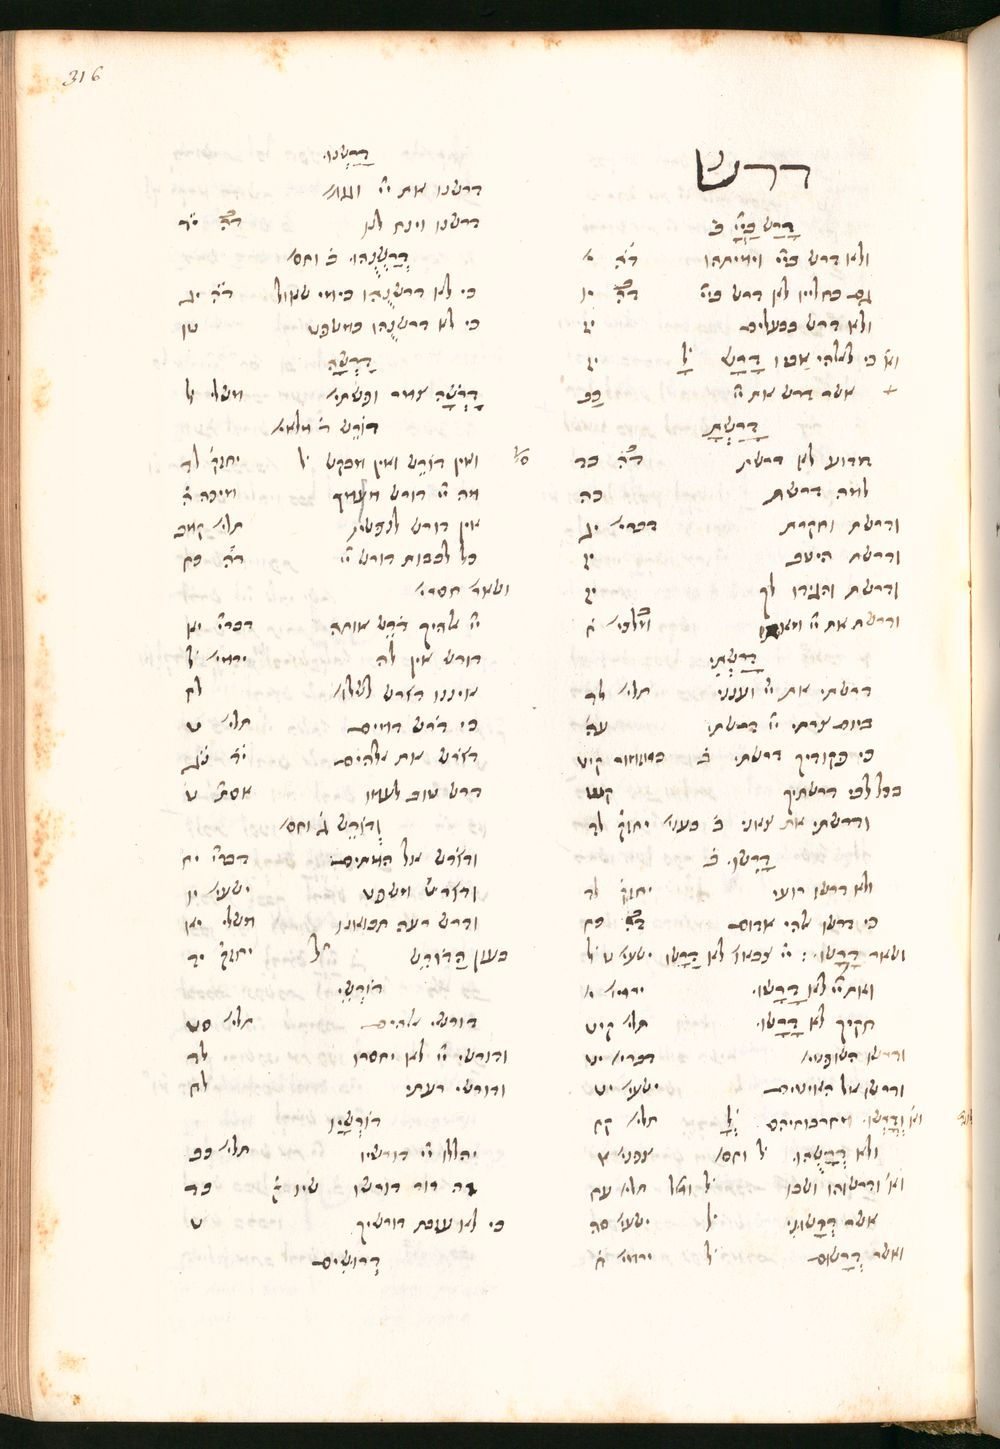 316
דרש
דָרַש בַּיְיָ ב׳
ולא דרש ביי׳ וימיתהו דה׳ י
גם בחליו לא דרש ביי׳ דה׳ יו
ולא דרש בבעלים יז
וא׳ כי לאלהי אביו דָרָש ל׳
אשר דרש את יי׳ כב
דָרַשְתָ
מדוע לא דרשת דה׳ כד
למה דרשת כה
ודרשת וחקרת דברי׳ יג
ודרשת היטב יז
ודרשת והגידו לך יז
ודרשת את יי׳ מאותו ומלכי׳ ח
דָרַשְתִי
דרשתי את יי׳ וענני תלי׳ לד
ביום צרתי יי׳ דרשתי עה
כי פקודיך דרשתי ב׳ במזמור קיט
בכל לבי דרשתיך
ודרשתי את צאני ב׳ בעני׳ יחזק׳ לד
דָרְשוּ ב׳
ולא דרשו רועי יחזק׳ לד
כי דרשו אלהי אדום דה׳ כח
ושאר דָרָשוּ יי׳ צבאו׳ לא דָרָשוּ ישעי׳ ט
ואת יי׳ לא דָרָשוּ ירמי׳ י
חקיך לא דָרָשוּ תלי׳ קיט
ודרשו השופטי׳ דברי׳ יט
ודרשו אל האטים ישעי׳ יט
וא׳ וְדָרְשוּ מחרבותיהם תלי׳ קט
ולא דְרָשֻהוּ ל׳ וחס׳ צפני׳ א
וא׳ ודרשוהו ושבו תלי׳ עח
אשר דְרָשוּנִי ל׳ ישעי׳ סה
ואשר דְרָשוּם ל׳ ירמי׳ ח
דָרַשְנוּ
דרשנו את יי׳
דרשנו וינח לנו דה׳ יד
דְרַשְנֻהוּ ב׳ וחס׳
כי לא דרשנֻהו בימי שאול דה׳ יג
כי לא דרשנֻהו כמשפט טו
דָרְשָה
דָרְשָה צמר ופשתי׳ משלי ל׳
דוֹרֵש ד׳ מלאי׳
ואין דוֹרֵש ואין מבקש ל׳ יחזק׳ לד
מה יי׳ דורש ממך מיכה ו׳
אין דורש לנפשי תלי׳ קמב
כל לבבות דורש יי׳ דה׳ כח
ושאר׳ חסרי׳
יי׳ אלהיך דֹרֵש אותה דברי׳ יא
דורש אין לה ירמי׳ ל׳
איננו דֹרֵש לשלו׳ לח
כי דֹרֵש דמים תלי׳ ט
דֹרֵש את אלהים יד׳ נג
דרש טוב לעמו אסת׳ י
וְדוֹרֵש ג׳ וחס׳
ודֹרֵש אל המתים דברי׳ יח
ודֹרֵש משפט ישעי׳ יו
ודרש רעה תבואנו משלי יא
כעון הַדוֹרֵש ל׳ יחזק׳ יד
דוֹרְשֵי
דורשי אלהים תלי׳ סט
ודורשי יי׳ לא יחסרו לד
ודורשי רעתי לח
דוֹרְשָיו
יהללו יי׳ דורשיו תלי׳ כב
זה דור דורשו כד
כי לא עזבת דורשיך ט
דְרוּשִים